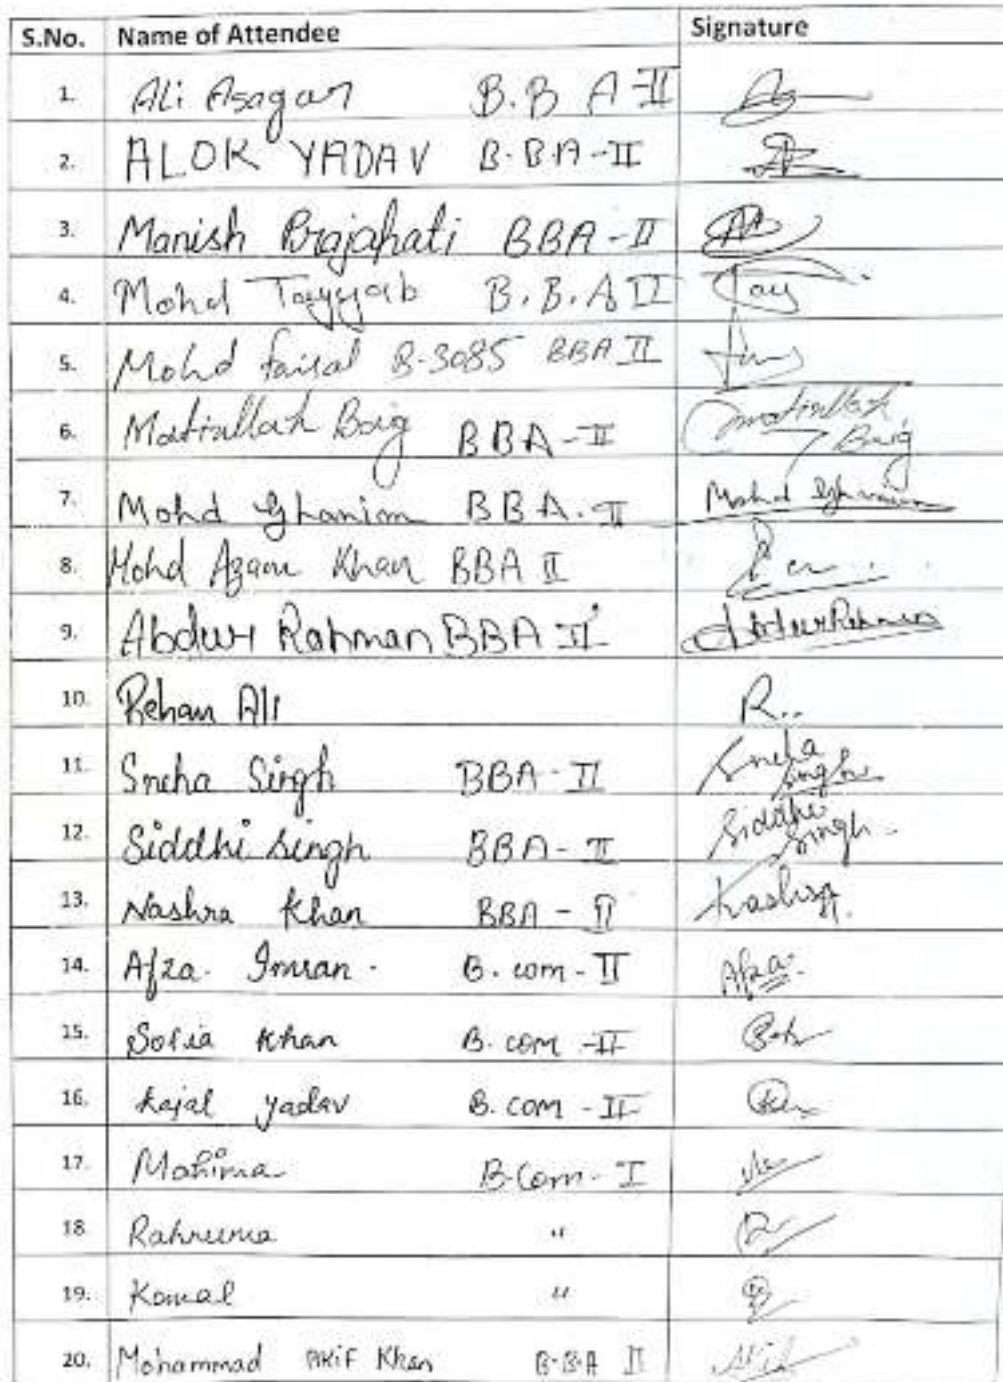 S.No. Name of Attendee Signature
1. Ali Asagar B.B A-II
2. ALOK YADAV B.B.A-II
3. Manish Prajapati BBA-II
4. Mohd Tayyab B.B.A II Tay
5. Mohd faisal B-3085 BBA II
6. Matiullah Baig BBA-II Matiullah Baig
7. Mohd Ghanim BBA-II Mohd Ghanim
8. Mohd Azam Khan BBA II
9. Abdur Rahman BBA II Abdur Rahman
10. Rehan Ali R..
11. Sneha Singh BBA-II Sneha Singh
12. Siddhi Singh BBA-II Siddhi Singh
13. Nashra Khan BBA-II
14. Afza. Imran. B.com-II Afza.
15. Sofia Khan B.com-II
16. Kajal yadav B.com-II
17. Mahima B.com-I
18. Rahnuma "
19. Komal "
20. Mohammad AKiF Khan B.B.A II Akif